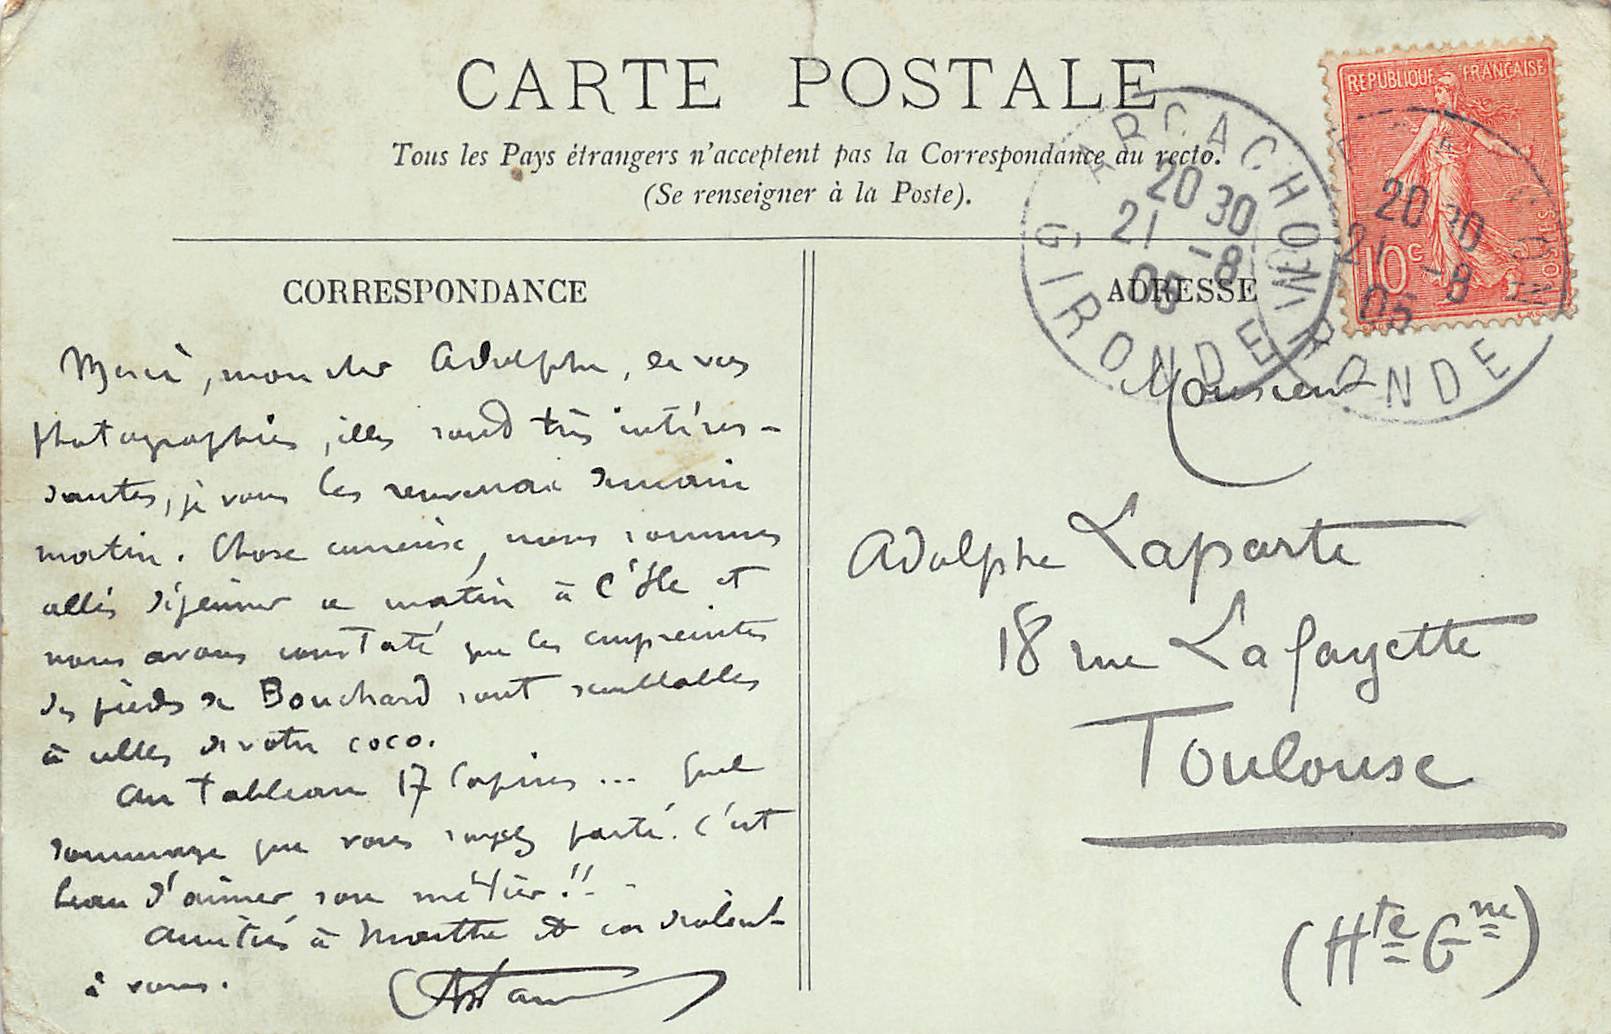 CARTE POSTALE
Tous les Pays étrangers n'acceptent pas la Correspondance au recto.
(Se renseigner à la Poste).
REPUBLIQUE FRANÇAISE
10c
ARCACHON
20 30
21 -8
05
GIRONDE
20 30
21 -8
05
GIRONDE
CORRESPONDANCE
Merci, mon cher Adolphe, de vos
photographies, elles sont très intéres-
santes, je vous les renverrai demain
matin. Chose curieuse, nous sommes
allés déjeuner ce matin à l'île et
nous avons constaté que les empreintes
des pieds de Bouchard sont semblables
à celles de votre coco.
Au tableau 17 lapins... Quel
dommage que vous soyez parti. C'est
beau d'aimer son métier!!
Amitiés à Marthe et
à vous.
ADRESSE
Monsieur
Adolphe Laporte
18 rue Lafayette
Toulouse
(Hte Gne)